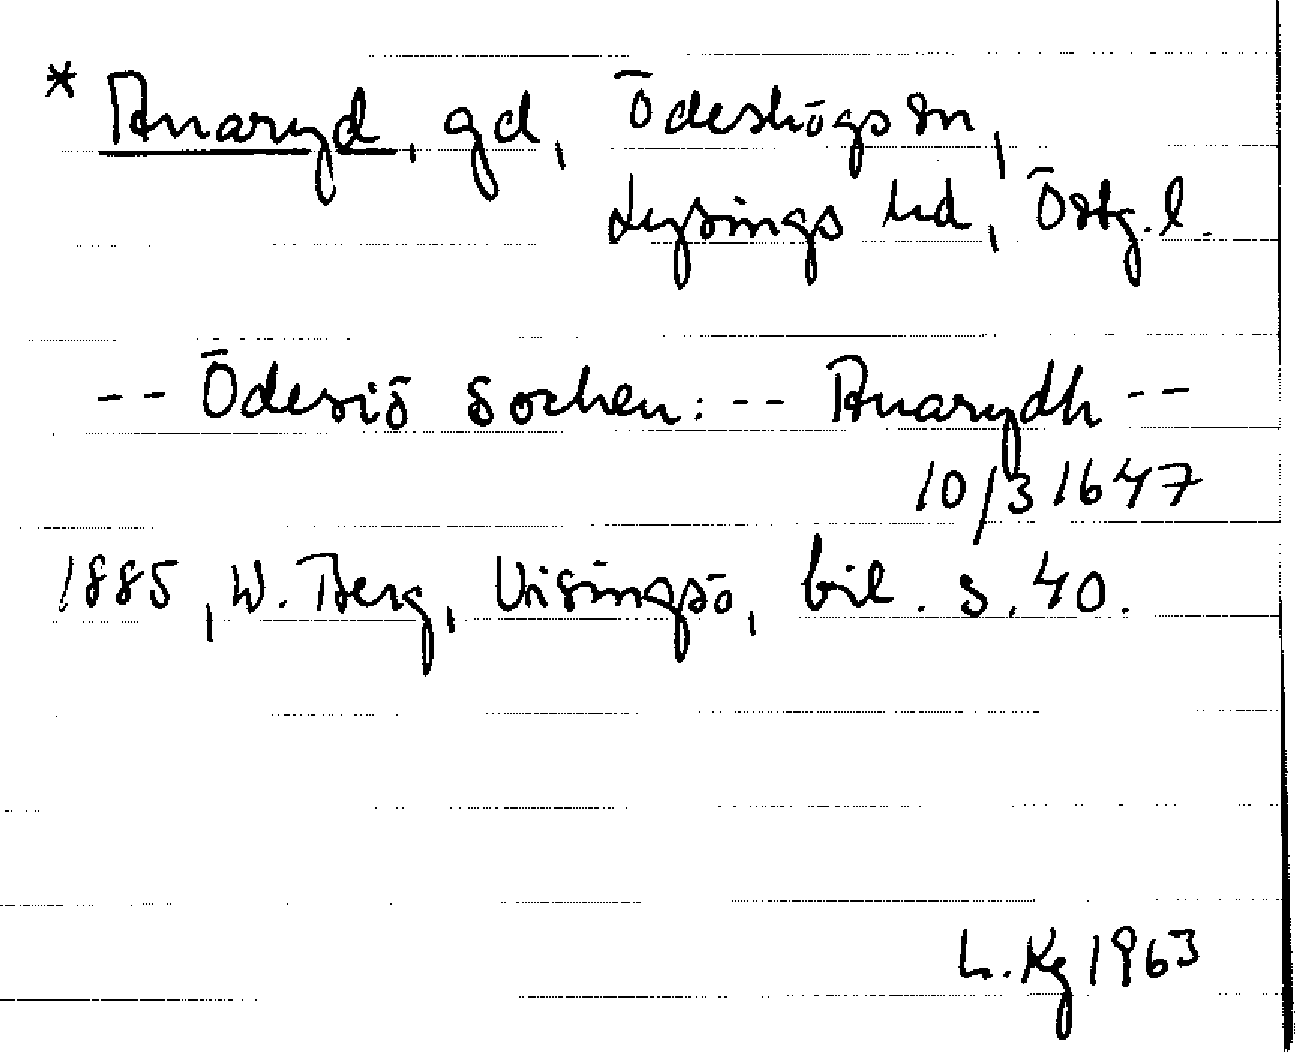 * Anaryd, gd, Ödeshögs sn,
Lysings hd, Östg. l.
-- Ödesiö Sochen: -- Anarydh --
10/3 1647
1885, W. Berg, Visingsö, bil. s. 40.
L. Kg 1963